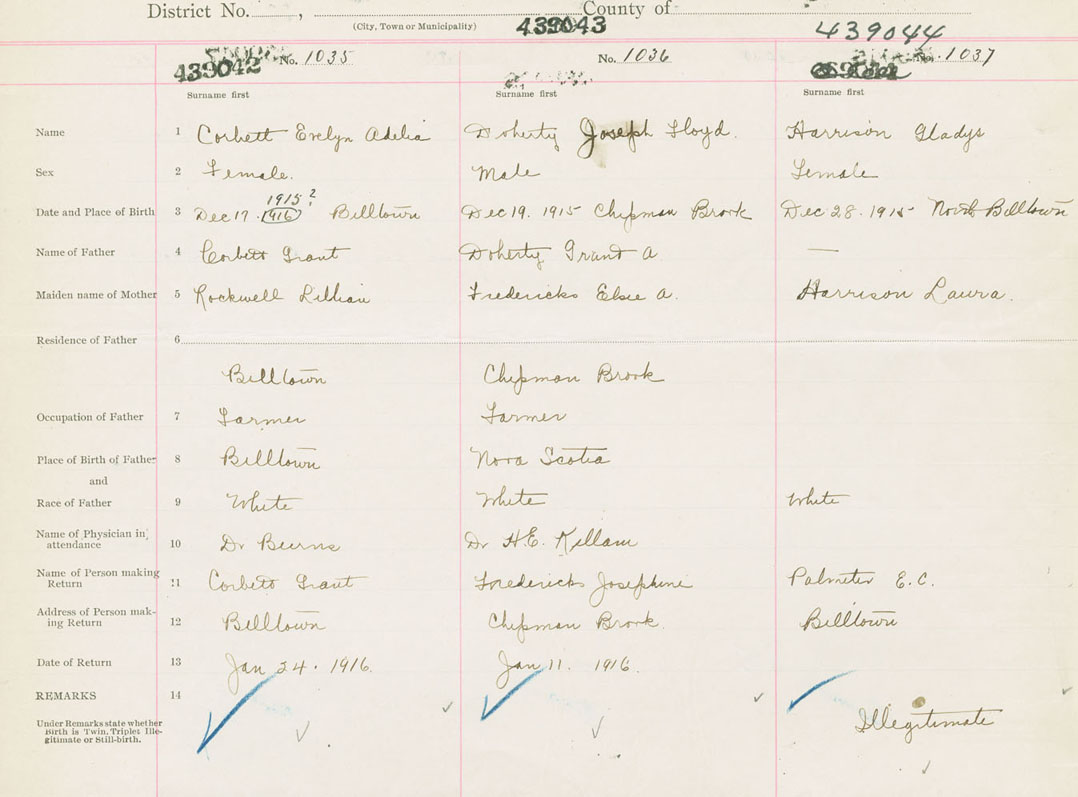 District No. , County of
(City, Town or Municipality) 439043 439044
439042 No. 1035 No. 1036 No. 1037
Surname first Surname first Surname first
Name 1 Corbett Evelyn Adelia Doherty Joseph Lloyd. Harrison Gladys
Sex 2 Female. Male Female
1915?
Date and Place of Birth 3 Dec 17. 1916 Billtown Dec 19. 1915 Chipman Brook Dec 28. 1915 North Billtown
Name of Father 4 Corbett Grant Doherty Grant A. —
Maiden name of Mother 5 Rockwell Lillian Fredericks Elsie A. Harrison Laura.
Residence of Father 6
Billtown Chipman Brook
Occupation of Father 7 Farmer Farmer
Place of Birth of Father 8 Billtown Nova Scotia
and
Race of Father 9 White White White
Name of Physician in
attendance 10 Dr Burns Dr H.E. Killam
Name of Person making
Return 11 Corbett Grant Fredericks Josephine Palmeter E.C.
Address of Person mak-
ing Return 12 Billtown Chipman Brook. Billtown
Date of Return 13 Jan 24. 1916. Jan 11. 1916.
REMARKS 14
Under Remarks state whether
Birth is Twin, Triplet Ille-
gitimate or Still-birth.
Illegitimate